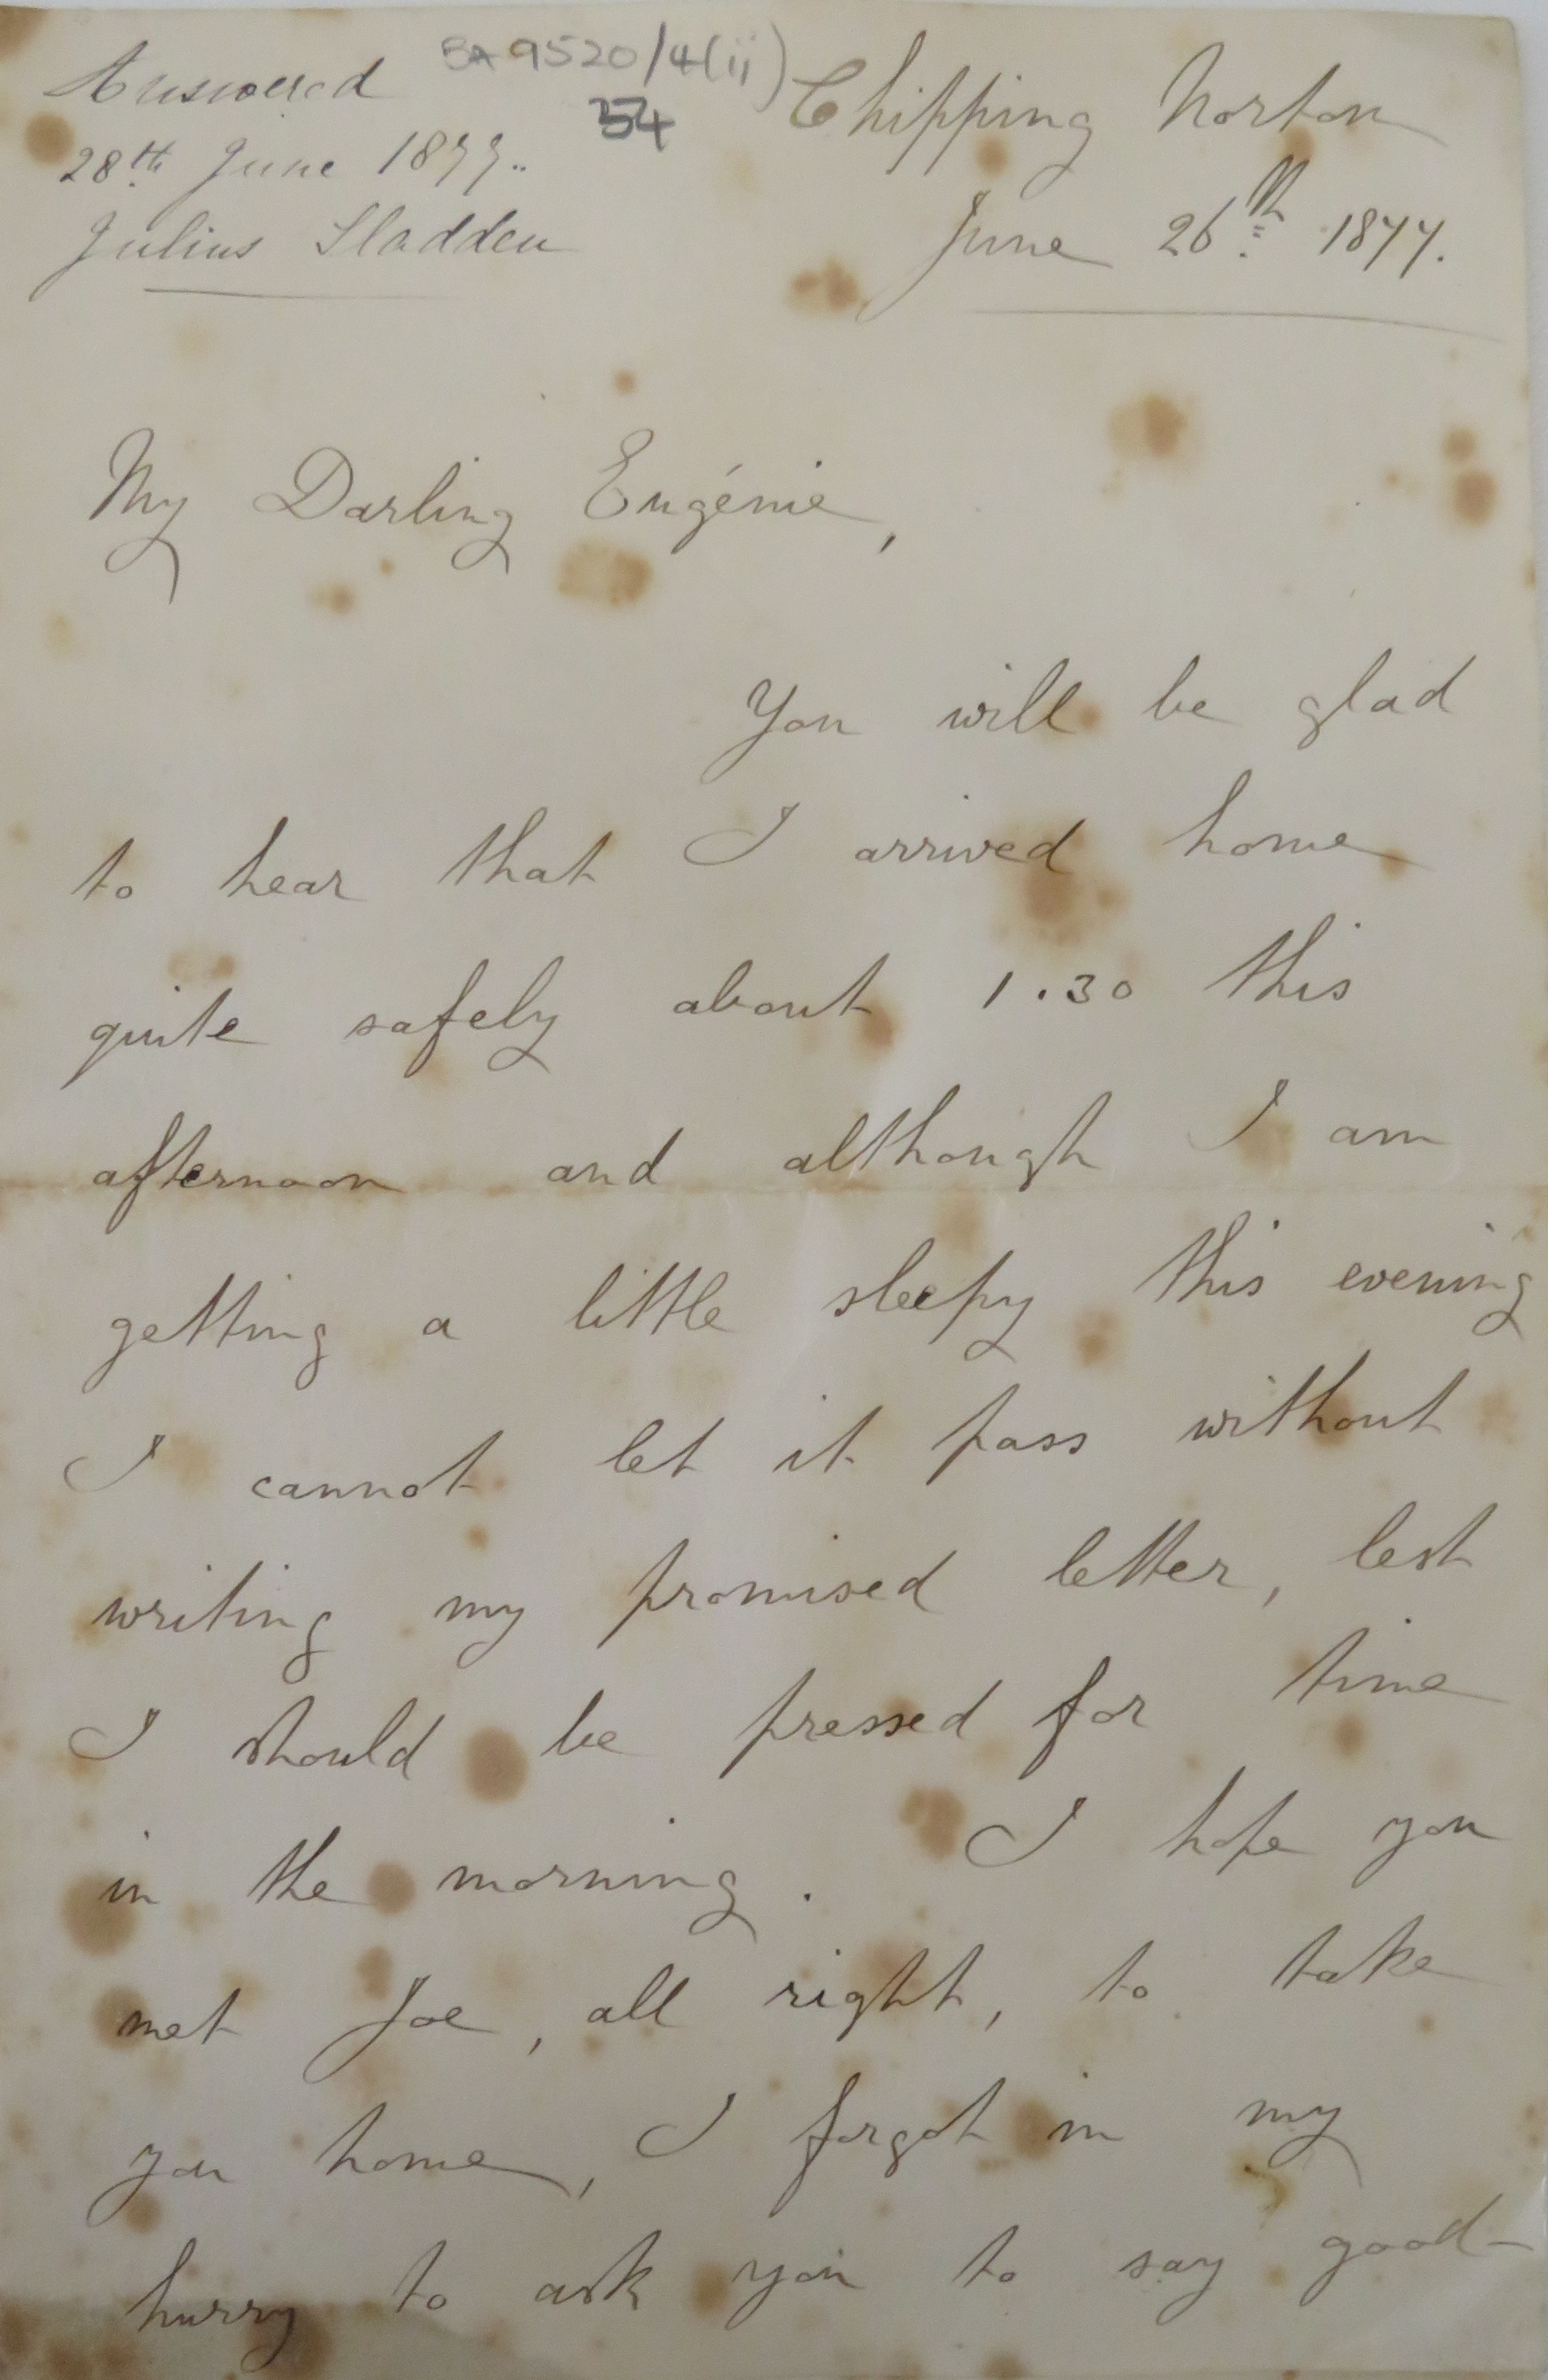 BA 9520/4(ii)
54
Answered
28th June 1877.
Julius Sladden
Chipping Norton
June 26th 1877.
My Darling Eugénie,
You will be glad
to hear that I arrived home
quite safely about 1.30 this
afternoon and although I am
getting a little sleepy this evening
I cannot let it pass without
writing my promised letter, lest
I should be pressed for time
in the morning. I hope you
met Joe, all right, to take
you home, I forgot in my
hurry to ask you to say good-